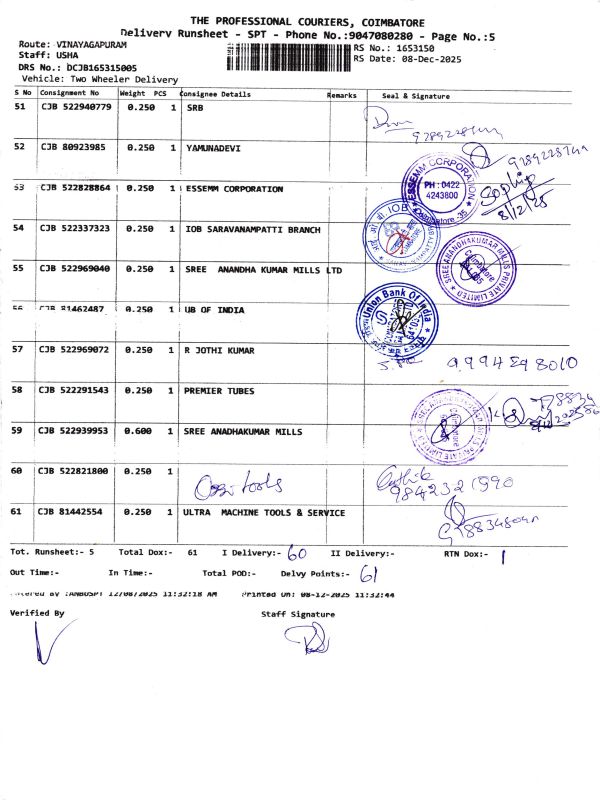 THE PROFESSIONAL COURIERS, COIMBATORE
Delivery Runsheet - SPT - Phone No.:9047080280 - Page No.:5
Route: VINAYAGAPURAM RS No.: 1653150
Staff: USHA RS Date: 08-Dec-2025
DRS No.: DCJB165315005
Vehicle: Two Wheeler Delivery
S No Consignment No Weight PCS Consignee Details Remarks Seal & Signature
51 CJB 522940779 0.250 1 SRB
52 CJB 80923985 0.250 1 YAMUNADEVI
53 CJB 522828864 0.250 1 ESSEMM CORPORATION
ESSEMM CORPORATION
PH : 0422
4243800
Coimbatore -35
8/12/25
54 CJB 522337323 0.250 1 IOB SARAVANAMPATTI BRANCH
IOB
55 CJB 522969040 0.250 1 SREE ANANDHA KUMAR MILLS LTD
SREE ANANDHAKUMAR MILLS PRIVATE LIMITED
Coimbatore
56 CJB 81462487 0.250 1 UB OF INDIA
Union Bank Of India
57 CJB 522969072 0.250 1 R JOTHI KUMAR
58 CJB 522291543 0.250 1 PREMIER TUBES
59 CJB 522939953 0.600 1 SREE ANADHAKUMAR MILLS
60 CJB 522821800 0.250 1
9842321590
61 CJB 81442554 0.250 1 ULTRA MACHINE TOOLS & SERVICE
Tot. Runsheet:- 5 Total Dox:- 61 I Delivery:- 60 II Delivery:- RTN Dox:- 1
Out Time:- In Time:- Total POD:- Delvy Points:- 61
Entered By :ANBUSPT 12/08/2025 11:32:18 AM Printed On: 08-12-2025 11:32:44
Verified By Staff Signature